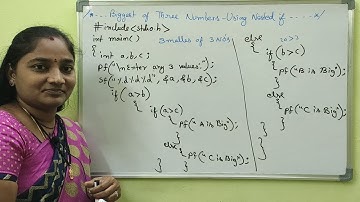 /*... Biggest of Three Numbers - Using Nested if ....*/
#include<stdio.h>
int main()
{ int a,b,c;
3 malles of 3 NOS
pf("\nEnter any 3 values:");
sf("%d%d%d", &a, &b, &c);
if( a>b)
{ if (a>c)
{ pf("A is Big");
}
else
{ pf("C is Big");
}
}
else
20>7
{ if (b>c)
{
pf("B is Big");
}
else
{
pf("C is Big");
}
}
}